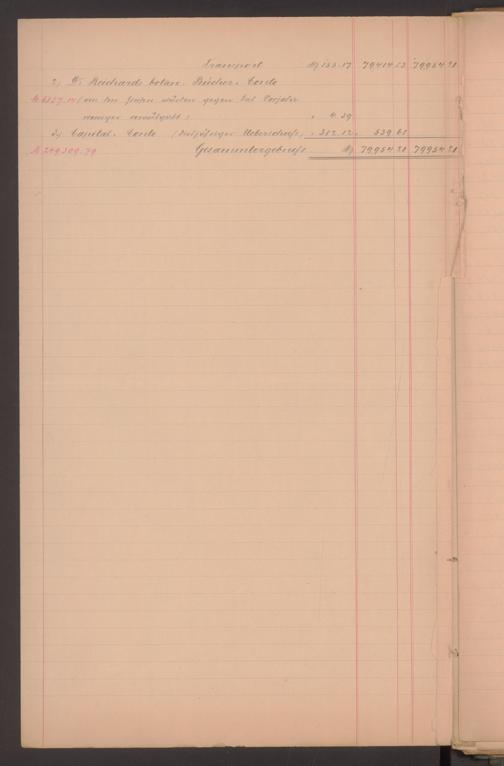 Transport M 153.17 79414.53 79954.21
2) Dr. Reichards botan. Bücher-Conto
M 6257.14 (an den Zinsen wurden gegen das Vorjahr
weniger verausgabt) " 4.39
3) Capital-Conto (diesjähriger Ueberschuss) " 382.12 539.68
M 249,309.79 Gesammtergebniss M 79954.21 79954.21